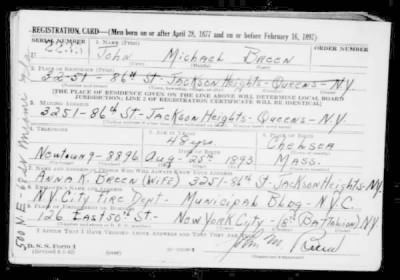 REGISTRATION CARD—(Men born on or after April 28, 1877 and on or before February 16, 1897)
SERIAL NUMBER 1. NAME (Print)
U John Michael Breen
(First) (Middle) (Last)
2. PLACE OF RESIDENCE (Print)
3251-86th St-Jackson Heights-Queens-N.Y.
[THE PLACE OF RESIDENCE GIVEN ON THE LINE ABOVE WILL DETERMINE LOCAL BOARD
JURISDICTION; LINE 2 OF REGISTRATION CERTIFICATE WILL BE IDENTICAL]
3. MAILING ADDRESS
3251-86th St-Jackson Heights-Queens-N.Y.
4. TELEPHONE 5. AGE IN YEARS 6. PLACE OF BIRTH
48 yrs. Chelsea
DATE OF BIRTH
Newtown9-8896 Aug-25th 1893 Mass.
7. NAME AND ADDRESS OF PERSON WHO WILL ALWAYS KNOW YOUR ADDRESS
Anna K Breen (Wife) 3251-86th St-Jackson Heights-N.Y.
8. EMPLOYER'S NAME AND ADDRESS
N.Y. City Fire Dept- Municipal Bldg-N.Y.C.
9. PLACE OF EMPLOYMENT OR BUSINESS
126 East 50th St- New York City-(8th Battalion) N.Y.
I AFFIRM THAT I HAVE VERIFIED ABOVE ANSWERS AND THAT THEY ARE TRUE.
D. S. S. Form 1 John M. Breen